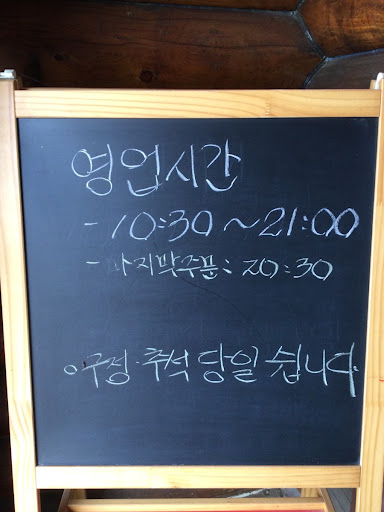 영업시간
- 10:30 ~ 21:00
- 마지막주문: 20:30
○ 구정·추석 당일 쉽니다.